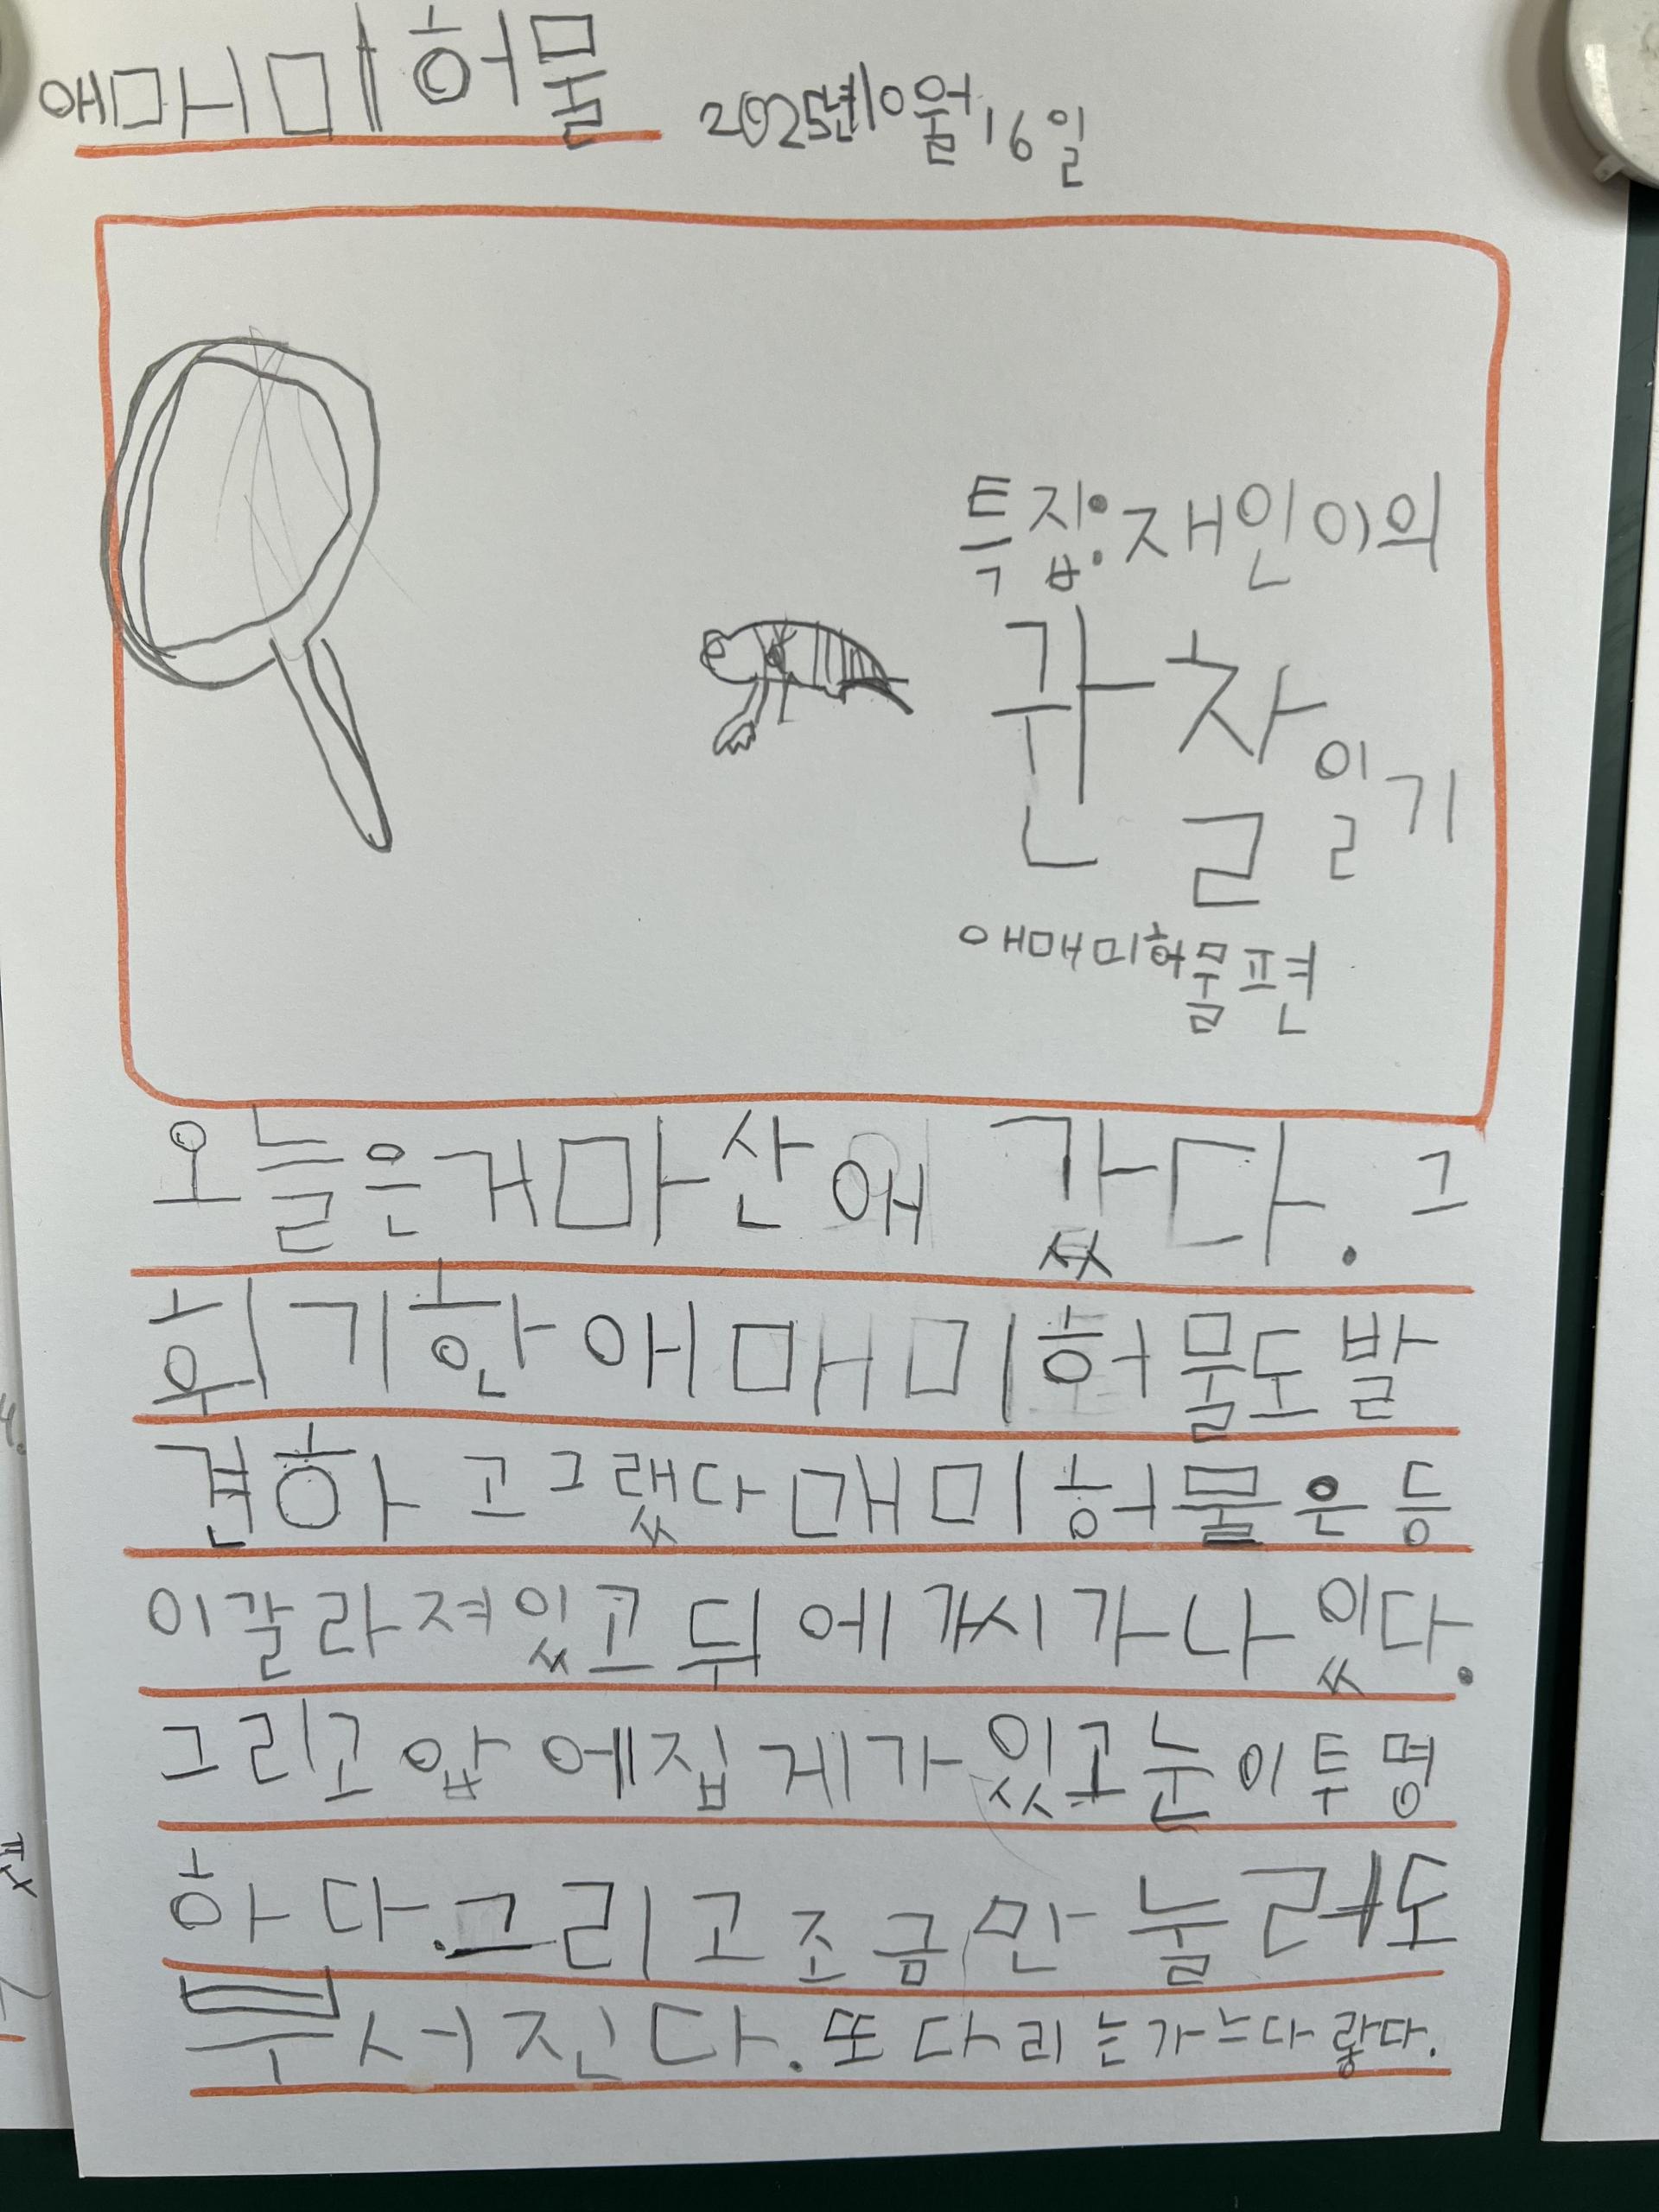 애매미허물 2025년10월16일
특집:재인이의
관찰일기
애매미허물편
오늘은거마산애 갔다. 그
휘기한애매미허물도발
견하고그랬다매미허물은등
이갈라져있고뒤에가시가나있다.
그리고압에집게가있고눈이투명
하다.그리고조금만눌러도
부서진다.또다리는가느다랗다.